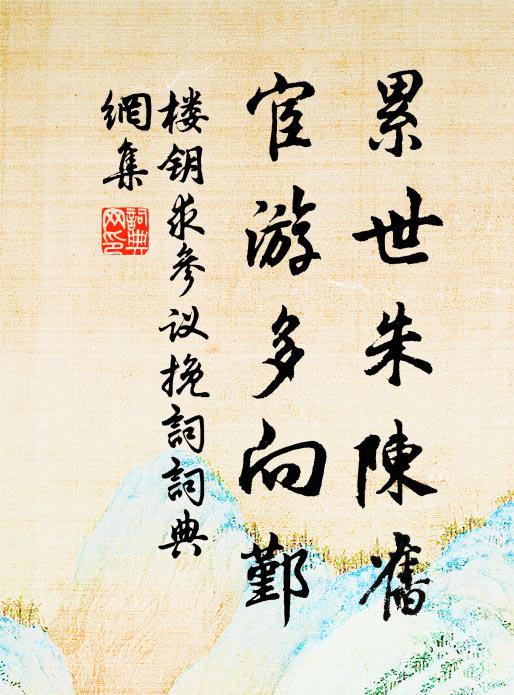 累世朱陳舊
宦游多向鄞
楼钥求参议挽詞詞典
網集
詞典
网印